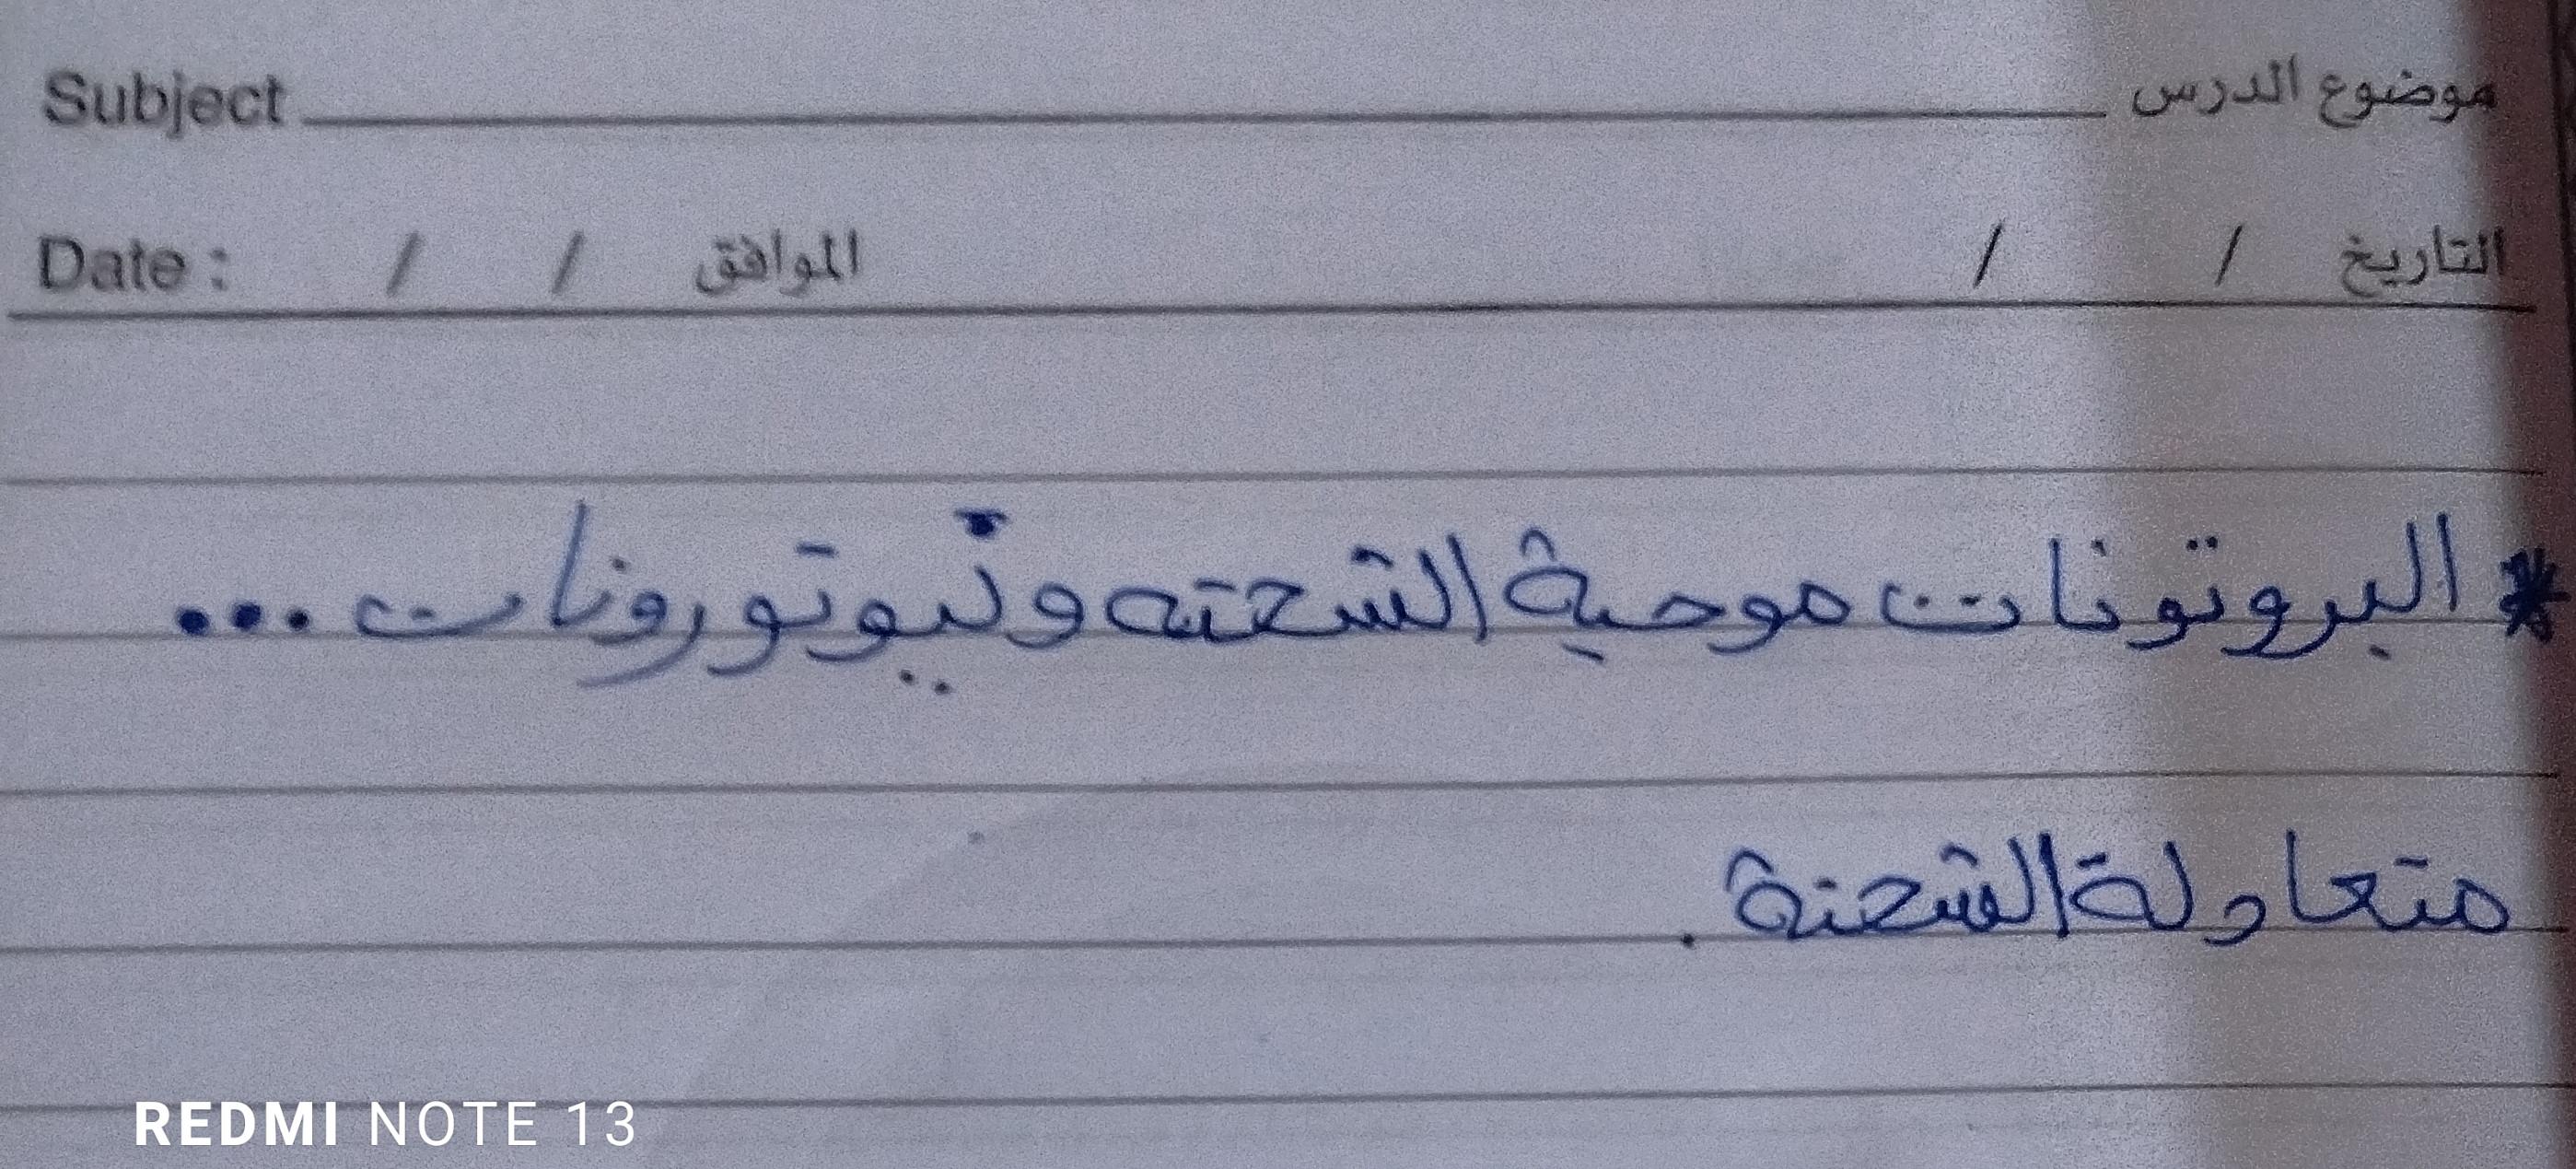 Subject موضوع الدرس
Date : / / الموافق / / التاريخ
* البروتونات موحبة الشحته ونيوتورونات ...
متعادلة الشحنة .
REDMI NOTE 13